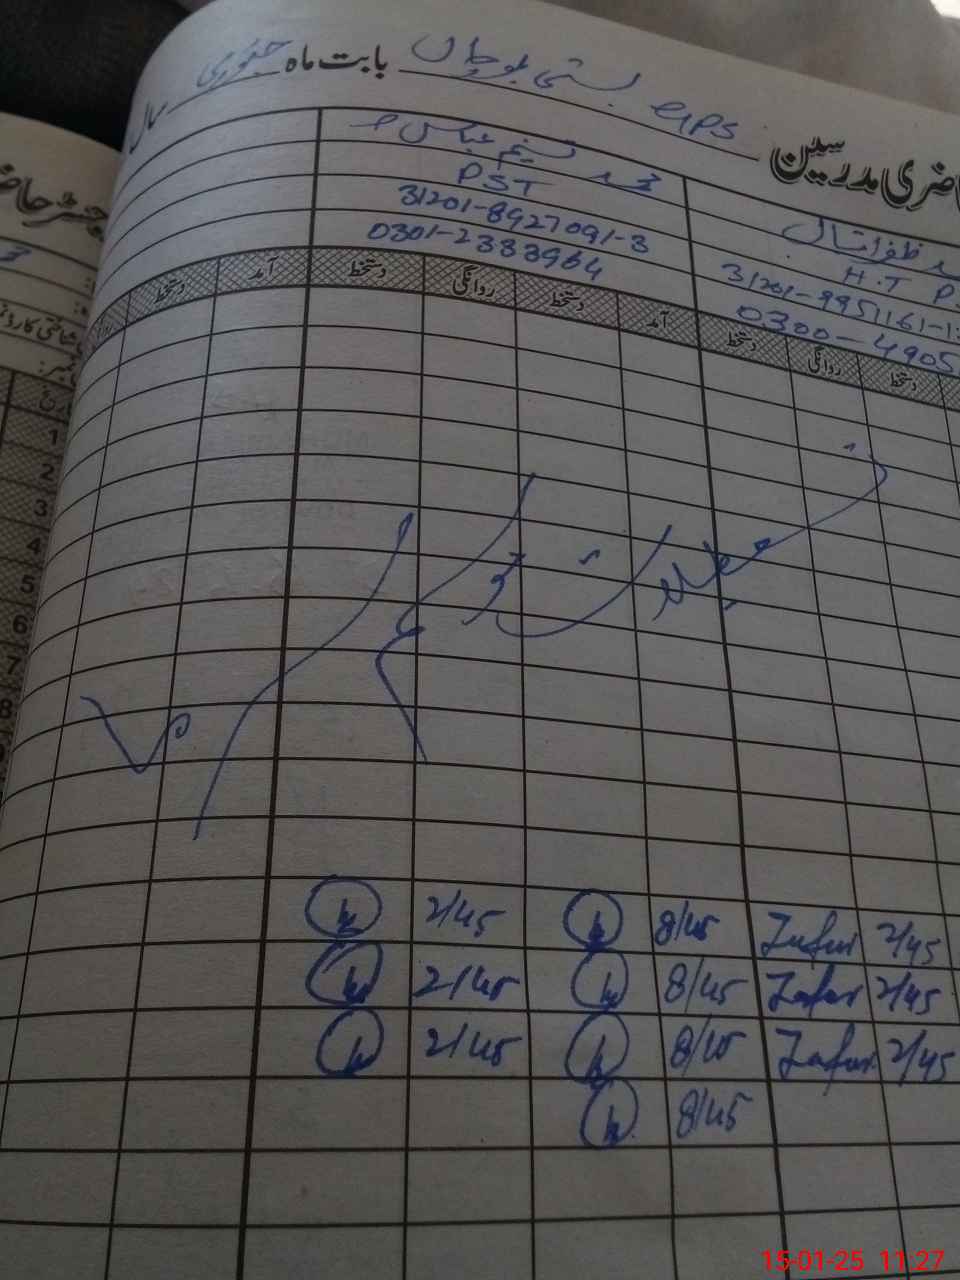 حاضری مدرسین GPS بستی بلوچاں بابت ماہ جنوری سال
محمد نسیم عباس
ظفر اقبال
PST
H.T
31201-8927091-3
0301-2383964
0300-4905
آمد دستخط روانگی دستخط آمد دستخط روانگی دستخط
شناختی کارڈ
1
2
3
4
5
6
7
8
تعطیلات موسم سرما
8/45 2/45 Zafar 2/45
8/45 2/45 Zafar 2/45
8/45 2/45 Zafar 2/45
8/45
15-01-25 11:27